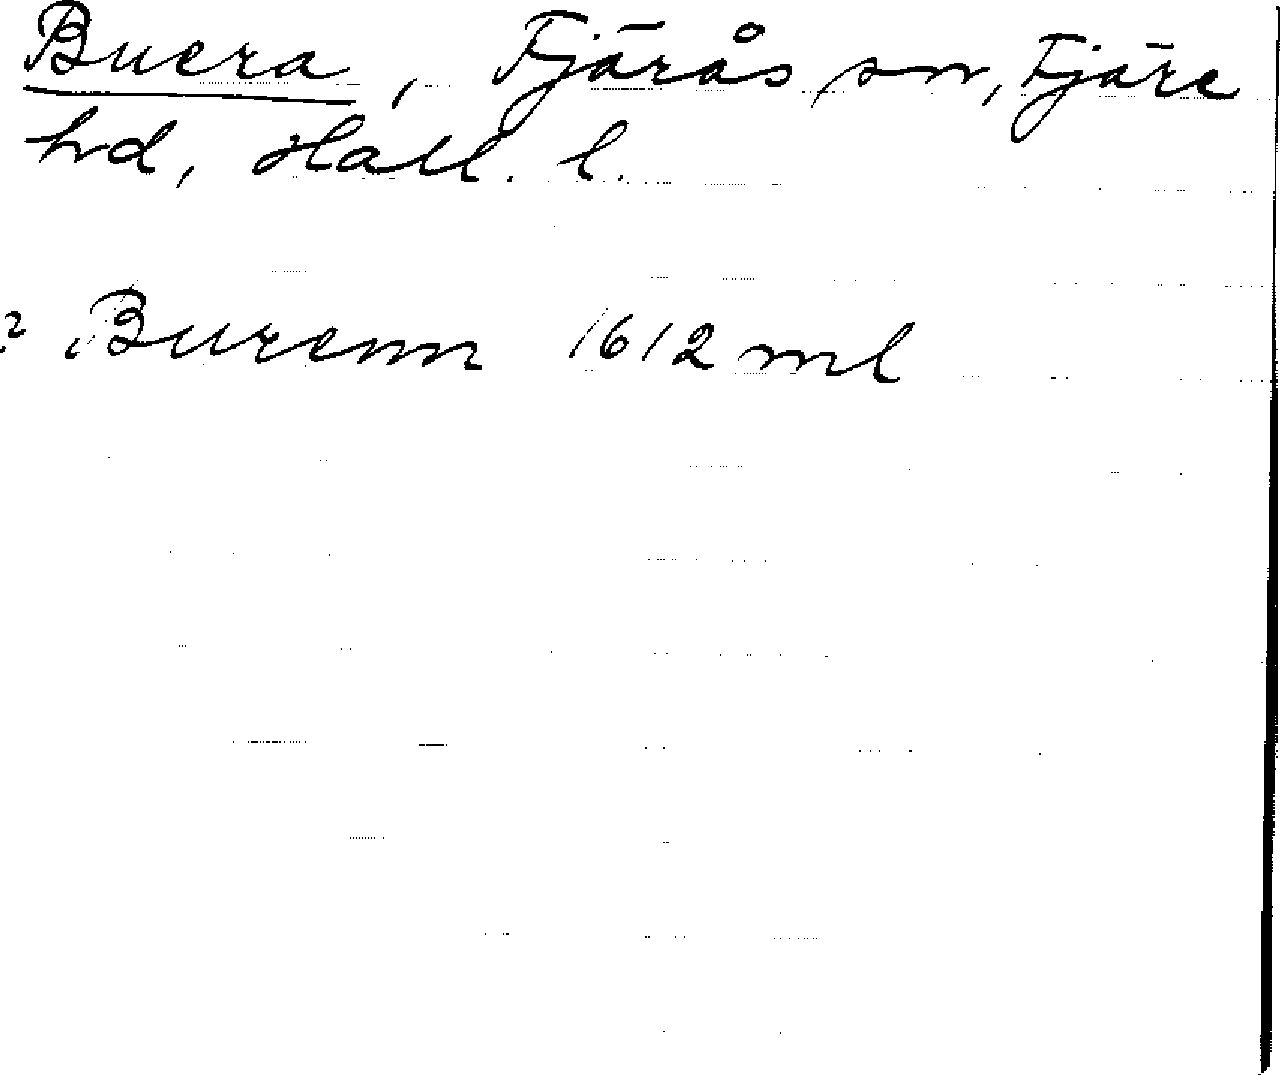 Buera, Fjärås sn, Fjäre
hd, Hall. l.
? Burenn 1612 ml